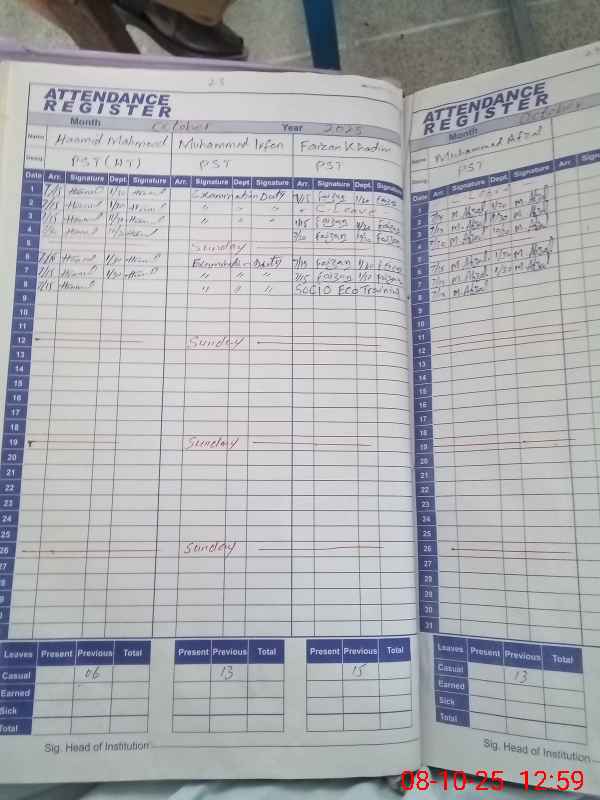 23
ATTENDANCE
REGISTER
Month October Year 2025
Name Haamid Mahmood Muhammad Irfan Faizan Khadim
Desig. PST (HT) PST PST
Date Arr. Signature Dept. Signature Arr. Signature Dept. Signature Arr. Signature Dept. Signature
1 7/15 Hamid 1/30 Hamid Examination Duty 7/15 Faizan 1/30 Faizan
2 7/15 Hamid 1/30 Hamid " " " C-Leave
3 7/15 Hamid Hamid " " 7/15 Faizan Faizan
4 Hamid Hamid 7/10 Faizan Faizan
5 Sunday
6 7/15 Hamid 1/30 Hamid Examination Duty 7/15 Faizan 1/30 Faizan
7 7/15 Hamid 1/30 Hamid " " 7/15 Faizan 1/30 Faizan
8 7/15 Hamid " " " SOCIO Eco Training
9
10
11
12 Sunday
13
14
15
16
17
18
19 Sunday
20
21
22
23
24
25
26 Sunday
27
28
Leaves Present Previous Total Present Previous Total Present Previous Total
Casual 06 13 15
Earned
Sick
Total
Sig. Head of Institution
ATTENDANCE
REGISTER
Month October
Name Muhammad Afzal
Desig. PST
Date Arr. Signature Dept. Signature Arr. Sig
1
2 M. Afzal M. Afzal
3 M. Afzal M. Afzal
4 M. Afzal M. Afzal
5
6 M. Afzal 1/30 M. Afzal
7 M. Afzal 1/30 M. Afzal
8 7/15 M. Afzal
9
10
11
12
13
14
15
16
17
18
19
20
21
22
23
24
25
26
27
28
29
30
31
Leaves Present Previous Total
Casual 13
Earned
Sick
Total
Sig. Head of Institution
08-10-25 12:59